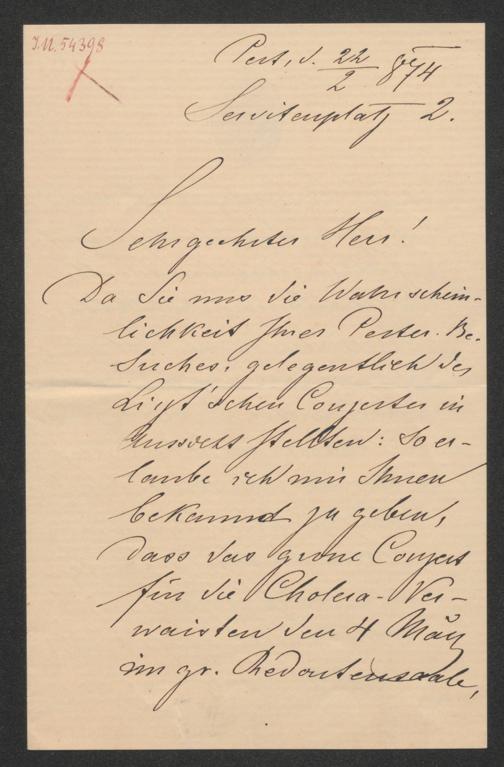 I.N. 54398
Pest, d. 22/2 874
Servitenplatz 2.
Sehrgeehrter Herr!
Da Sie uns die Wahrschein-
lichkeit Ihres Pester Be-
suches, gelegentlich des
Liszt'schen Conzertes in
Aussicht stellten: so er-
laube ich mir Ihnen
bekannd zu geben,
dass das grosse Conzert
für die Cholera-Ver-
waisten den 4 März
im gr. Redoutensaale,